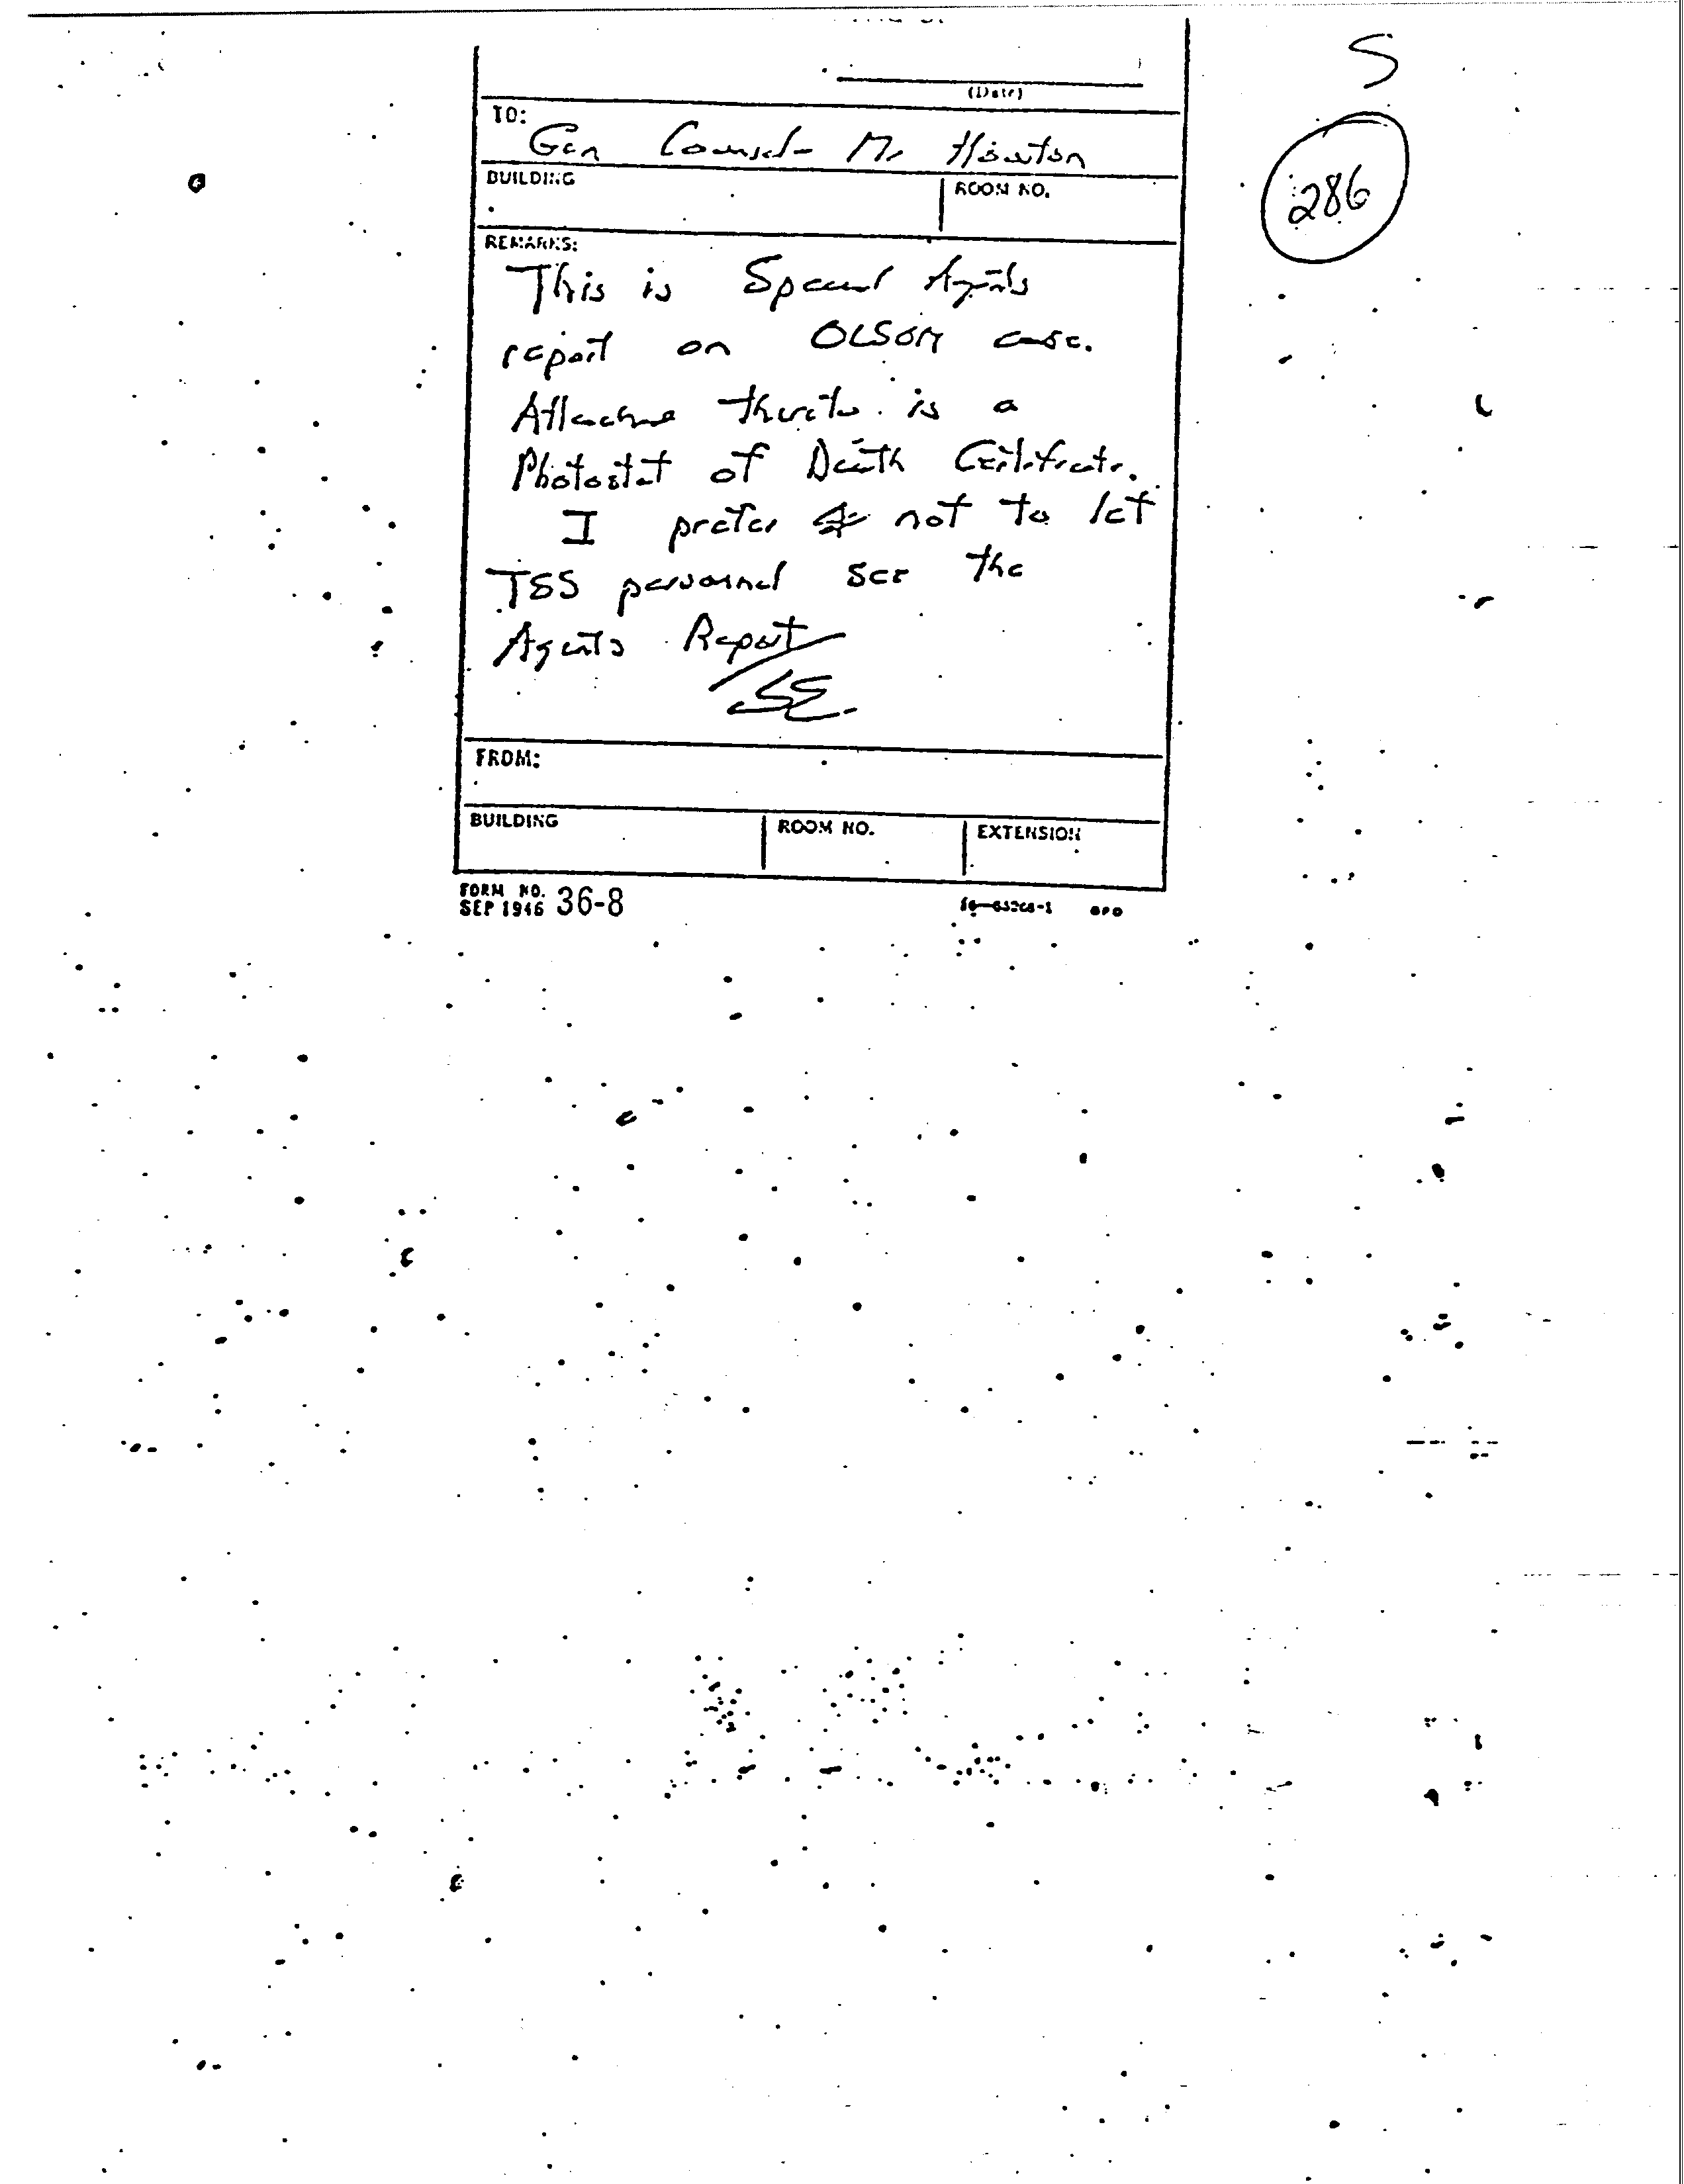 S
286
(Date)
TO:
Gen Counsel - Mr Houston
BUILDING
ROOM NO.
REMARKS:
This is Special Agents
report on OLSON case.
Attached thereto is a
Photostat of Death Certificate.
I prefer not to let
TSS personnel see the
Agents Report
SE
FROM:
BUILDING
ROOM NO.
EXTENSION
FORM NO.
SEP 1946 36-8
GPO